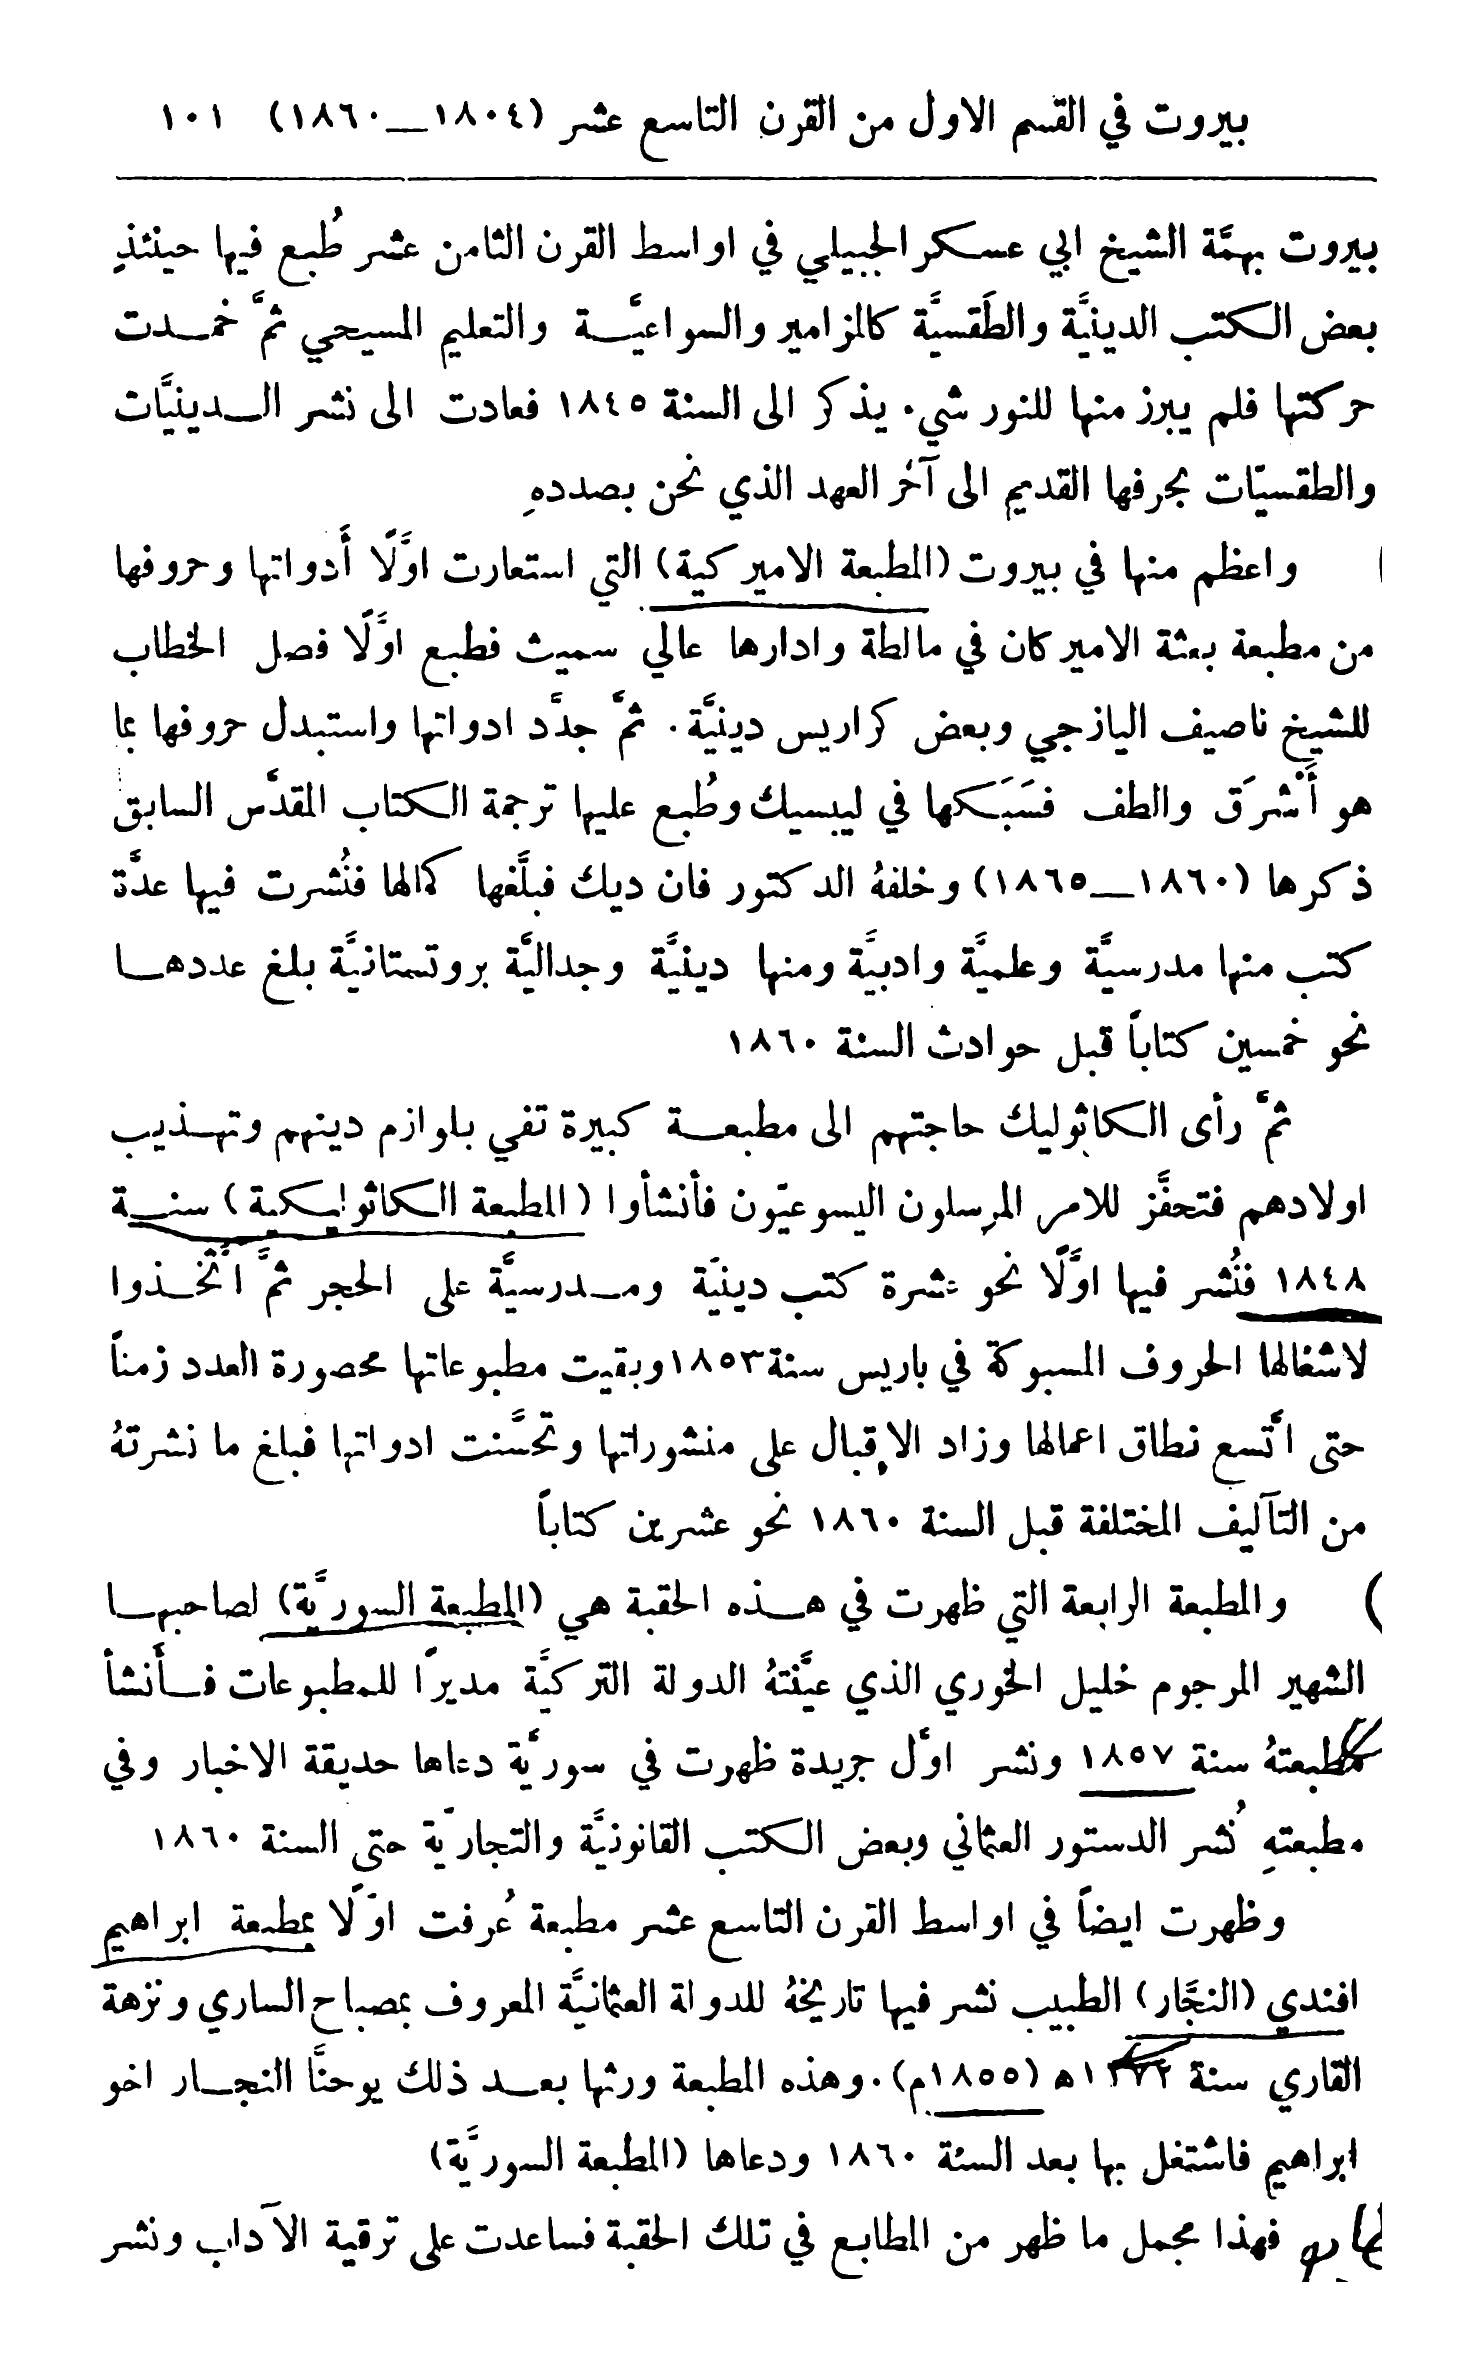 بيروت في القسم الاول من القرن التاسع عشر (١٨٠٤ــ١٨٦٠) ١٠١
بيروت بهمَّة الشيخ ابي عسكر الجبيلي في اواسط القرن الثامن عشر طُبع فيها حينئذٍ
بعض الكتب الدينيَّة والطَقسيَّة كالمزامير والسواعيَّة والتعليم المسيحي ثمَّ خمدت
حركتها فلم يبرز منها للنور شي. يذكر الى السنة ١٨٤٥ فعادت الى نشر الدينيَّات
والطقسيّات بحرفها القديم الى آخر العهد الذي نحن بصددهِ
واعظم منها في بيروت (المطبعة الاميركية) التي استعارت اوَّلًا أَدواتها وحروفها
من مطبعة بعثة الاميركان في مالطة وادارها عالي سميث فطبع اوَّلًا فصل الخطاب
للشيخ ناصيف اليازجي وبعض كراريس دينيَّة. ثمَّ جدَّد ادواتها واستبدل حروفها بما
هو أَشرَق والطف فسَبَكها في ليبسيك وطُبع عليها ترجمة الكتاب المقدَّس السابق
ذكرها (١٨٦٠ــ١٨٦٥) وخلفهُ الدكتور فان ديك فبلَّغها كمالها فنُشرت فيها عدَّة
كتب منها مدرسيَّة وعلميَّة وادبيَّة ومنها دينيَّة وجداليَّة بروتستانيَّة بلغ عددها
نحو خمسين كتاباً قبل حوادث السنة ١٨٦٠
ثمَّ رأى الكاثوليك حاجتهم الى مطبعة كبيرة تفي بلوازم دينهم وتهذيب
اولادهم فتحفَّز للامر المرسلون اليسوعيّون فأنشأوا (المطبعة الكاثوليكية) سنة
١٨٤٨ فنُشر فيها اوَّلًا نحو عشرة كتب دينيَّة ومدرسيَّة على الحجر ثمَّ اتَّخذوا
لاشغالها الحروف المسبوكة في باريس سنة ١٨٥٣ وبقيت مطبوعاتها محصورة العدد زمناً
حتى اتَّسع نطاق اعمالها وزاد الاقبال على منشوراتها وتحسَّنت ادواتها فبلغ ما نشرتهُ
من التآليف المختلفة قبل السنة ١٨٦٠ نحو عشرين كتاباً
والمطبعة الرابعة التي ظهرت في هذه الحقبة هي (المطبعة السوريَّة) لصاحبها
الشهير المرحوم خليل الخوري الذي عيَّنتهُ الدولة التركيَّة مديرًا للمطبوعات فأَنشأ
مطبعتهُ سنة ١٨٥٧ ونشر اوَّل جريدة ظهرت في سوريَّة دعاها حديقة الاخبار وفي
مطبعتهِ نُشر الدستور العثماني وبعض الكتب القانونيَّة والتجاريّة حتى السنة ١٨٦٠
وظهرت ايضاً في اواسط القرن التاسع عشر مطبعة عُرفت اوّلًا بمطبعة ابراهيم
افندي (النجَّار) الطبيب نشر فيها تاريخهُ للدولة العثمانيَّة المعروف بمصباح الساري ونزهة
القاري سنة ١٢٧٢ه (١٨٥٥م). وهذه المطبعة ورثها بعد ذلك يوحنَّا النجار اخو
ابراهيم فاشتغل بها بعد السنة ١٨٦٠ ودعاها (المطبعة السوريَّة)
فهذا مجمل ما ظهر من المطابع في تلك الحقبة فساعدت على ترقية الآداب ونشر